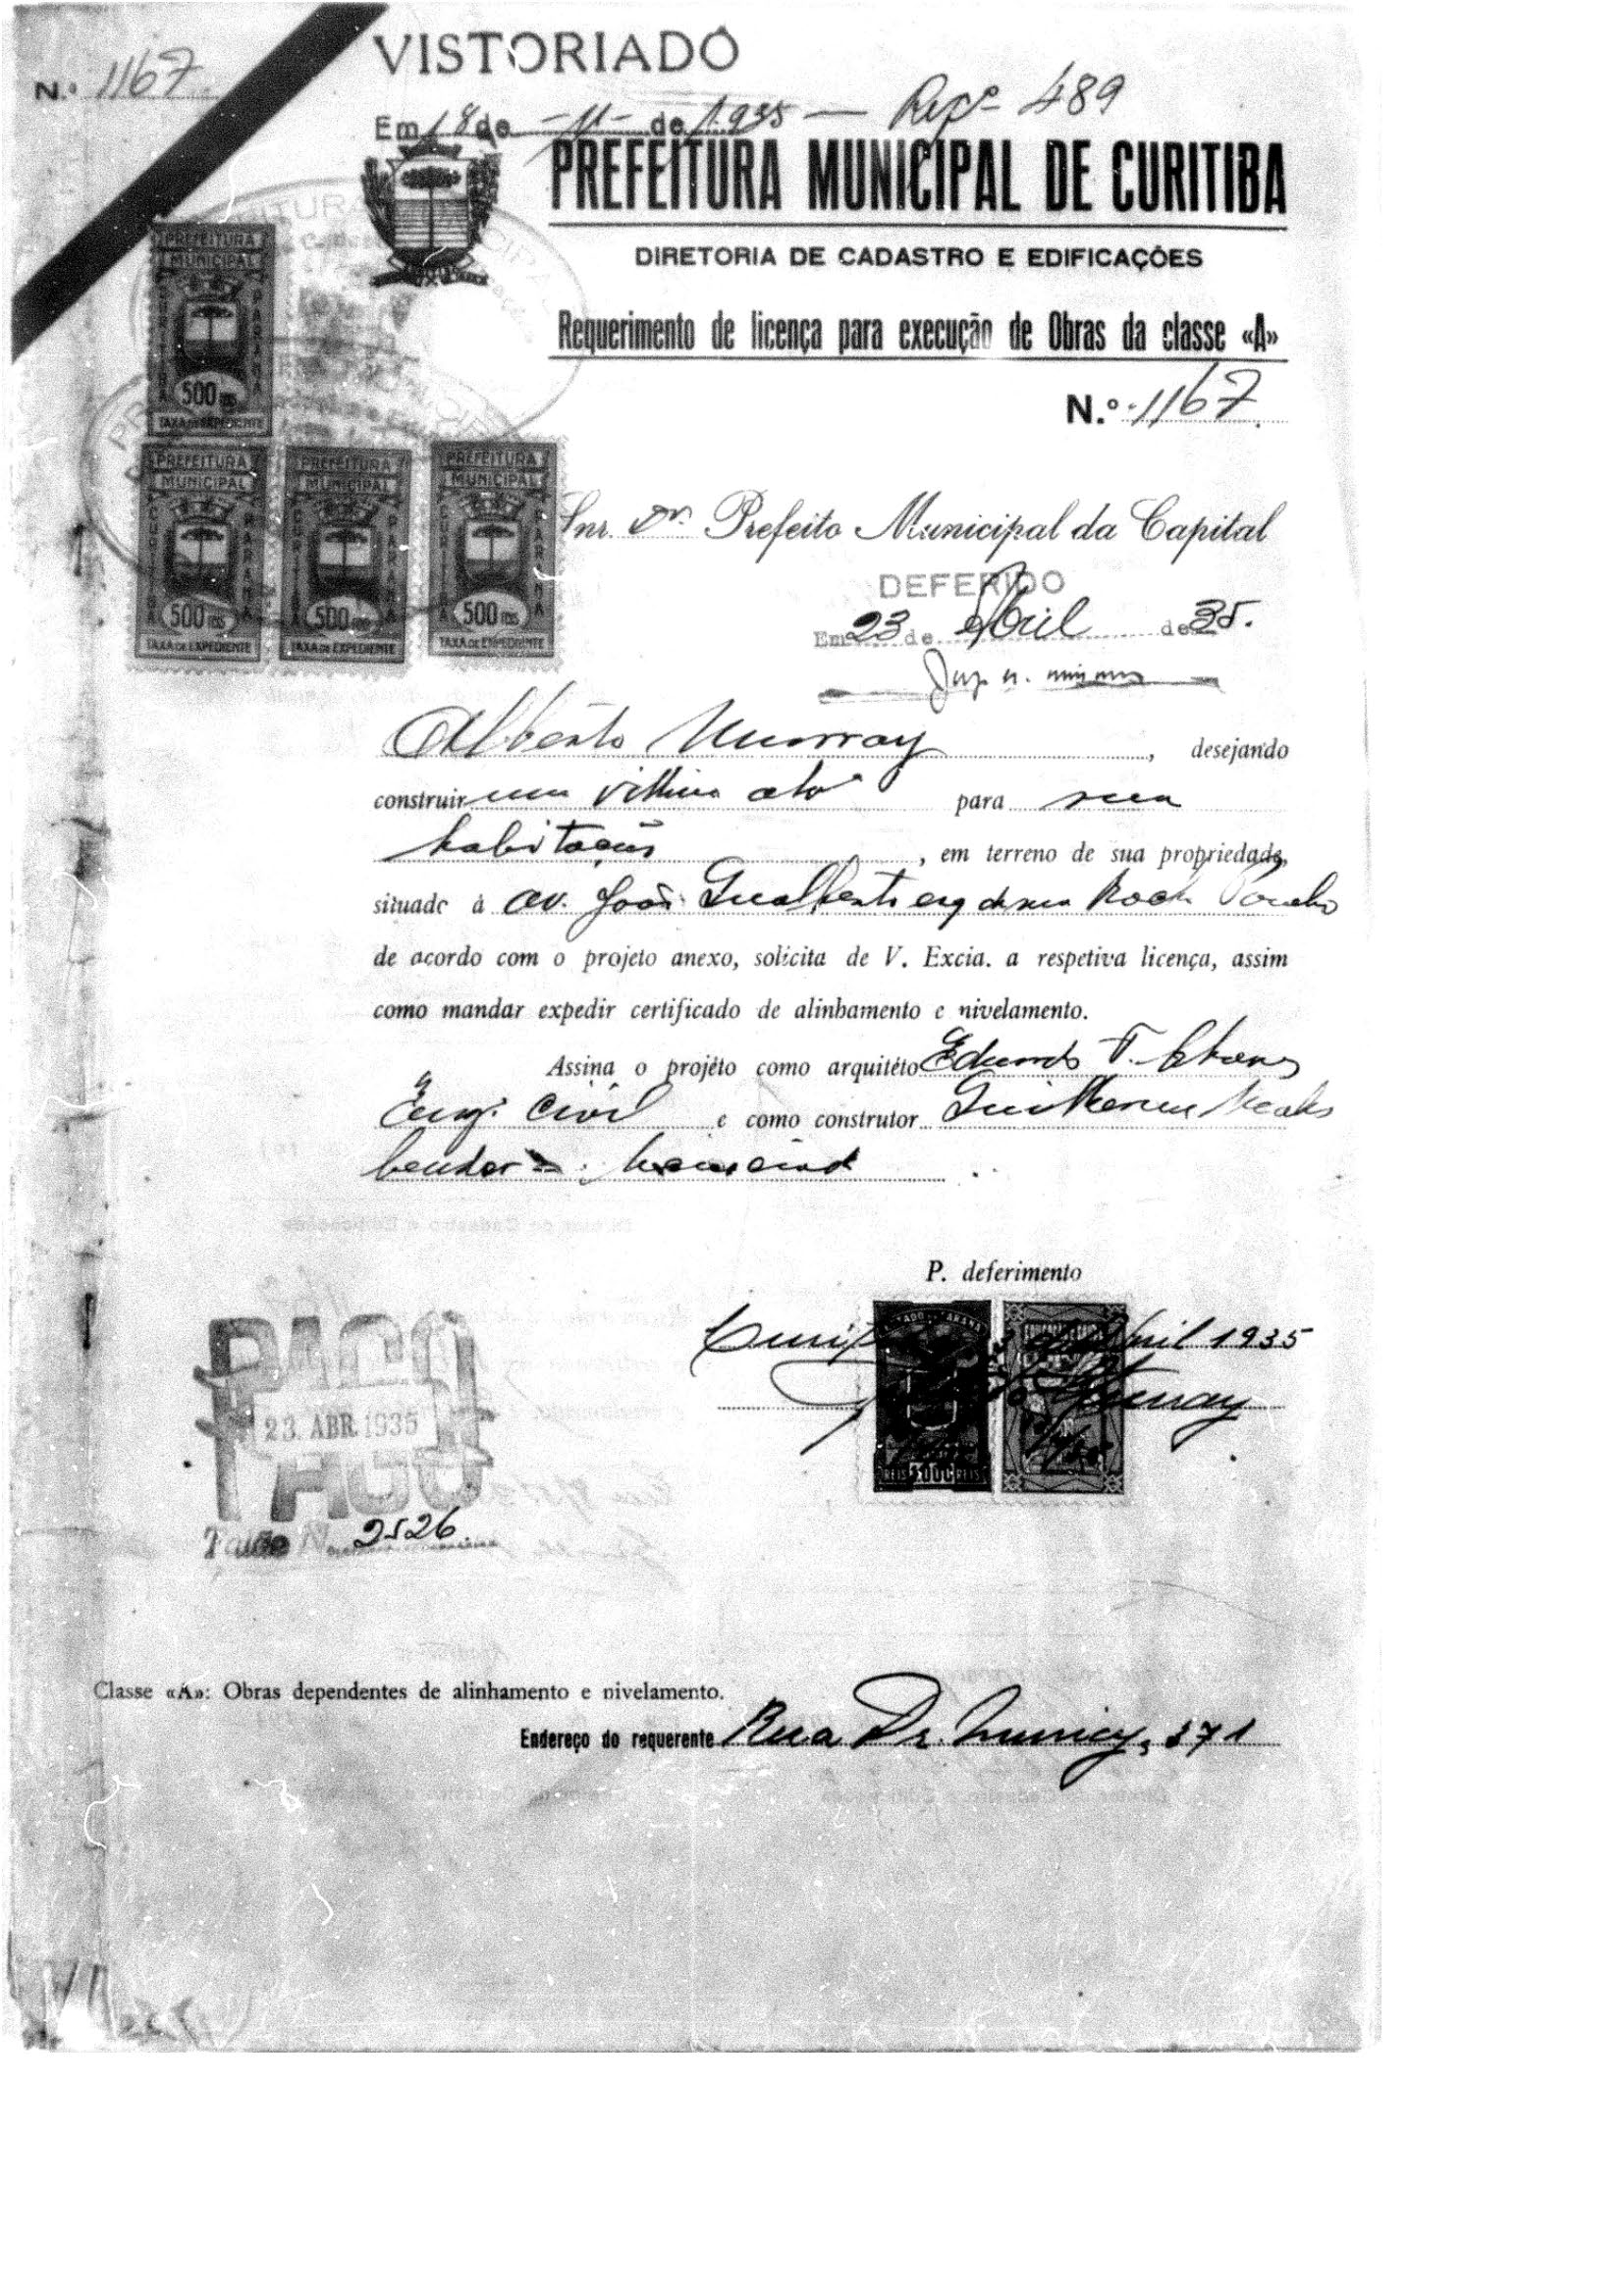 N.º 1167
VISTORIADO
Em 18 de -11- de 1.935 — Reqº 489
PREFEITURA MUNICIPAL DE CURITIBA
DIRETORIA DE CADASTRO E EDIFICAÇÕES
Requerimento de licença para execução de Obras da classe «A»
N.º 1167
PREFEITURA
MUNICIPAL
CURITIBA
PARANÁ
500 REIS
TAXA DE EXPEDIENTE
PREFEITURA
MUNICIPAL
CURITIBA
PARANÁ
500 REIS
TAXA DE EXPEDIENTE
PREFEITURA
MUNICIPAL
CURITIBA
PARANÁ
500 REIS
TAXA DE EXPEDIENTE
PREFEITURA
MUNICIPAL
CURITIBA
PARANÁ
500 REIS
TAXA DE EXPEDIENTE
Snr. Dr. Prefeito Municipal da Capital
DEFERIDO
Em 23 de Abril de 35.
Alberto Murray, desejando
construir um para sua
habitação, em terreno de sua propriedade,
situado á av. João Gualberto
de acordo com o projeto anexo, solicita de V. Excia. a respetiva licença, assim
como mandar expedir certificado de alinhamento e nivelamento.
Assina o projéto como arquitéto Eduardo F. Chaves
Engº Civil e como construtor Guilherme
P. deferimento
Abril 1935
Murray
REIS 1000 REIS
PAGO
23. ABR. 1935
PAGO
Talão N. 2526.
Classe «A»: Obras dependentes de alinhamento e nivelamento.
Endereço do requerente Rua Dr. Muricy, 371